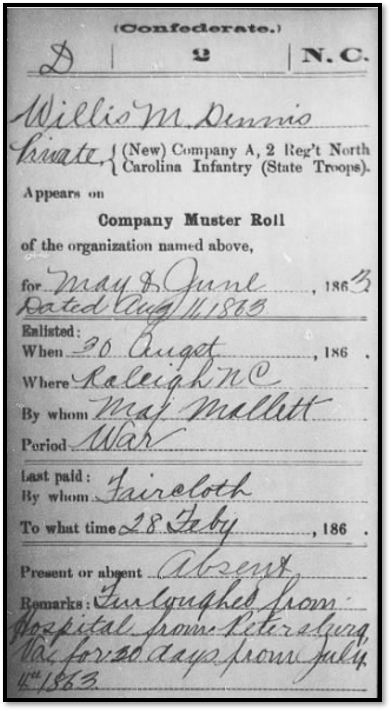 (Confederate.)
D | 2 | N. C.
Willis M. Dennis
Private, { (New) Company A, 2 Reg't North
Carolina Infantry (State Troops).
Appears on
Company Muster Roll
of the organization named above,
for May & June, 1863.
Dated Aug 11, 1863
Enlisted:
When 30 Augst, 186 .
Where Raleigh NC
By whom Maj Mallett
Period War
Last paid:
By whom Faircloth
To what time 28 Feby, 186 .
Present or absent Absent
Remarks: Furloughed from
Hospital from Petersburg
Va, for 30 days from July
4th 1863